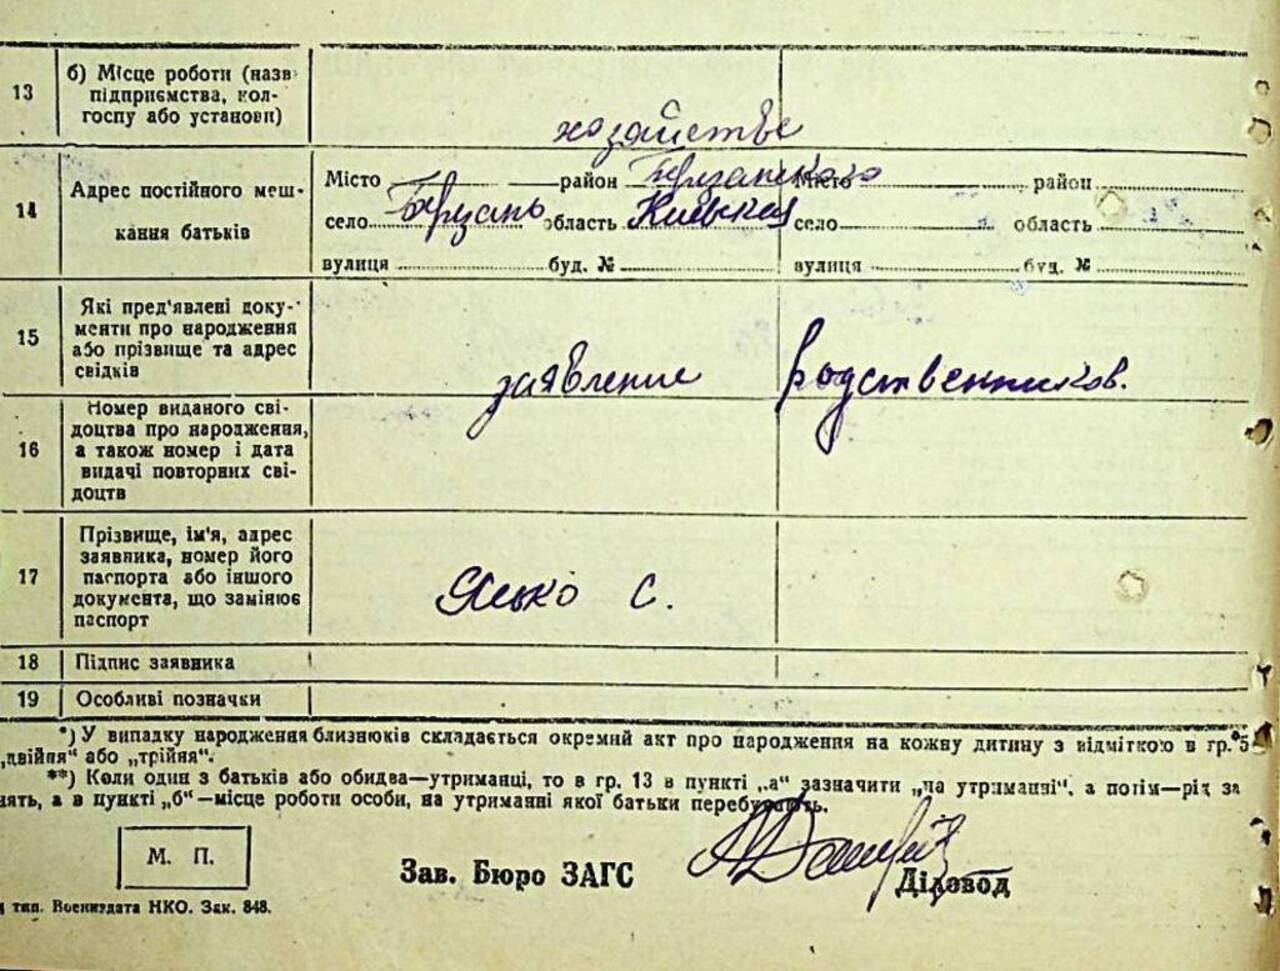 13 б) Місце роботи (назв
підприємства, кол-
госпу або установи)
хозайстве
14 Адрес постійного меш-
кання батьків
Місто район Місто район
село Березань область Киевская село область
вулиця буд. № вулиця буд. №
15 Які пред'явлені доку-
менти про народження
або прізвище та адрес
свідків
заявление родственников.
16 Номер виданого сві-
доцтва про народження,
а також номер і дата
видачі повторних сві-
доцтв
17 Прізвище, ім'я, адрес
заявника, номер його
паспорта або іншого
документа, що замінює
паспорт
С.
18 Підпис заявника
19 Особливі позначки
*) У випадку народження близнюків складається окремий акт про народження на кожну дитину з відміткою в гр. 5
„двійня“ або „трійня“.
**) Коли один з батьків або обидва—утриманці, то в гр. 13 в пункті „а“ зазначити „на утриманні“, а потім—рід за
нять, а в пункті „б“—місце роботи особи, на утриманні якої батьки перебувають.
М. П.
Зав. Бюро ЗАГС Діловод
тип. Воениздата НКО. Зак. 848.